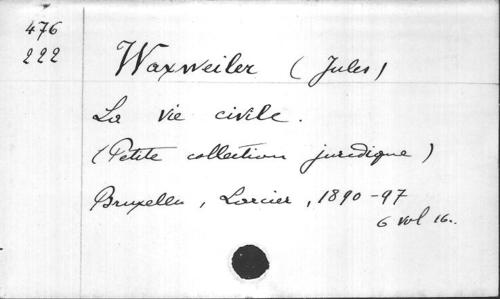 476
222
Waxweiler (Jules)
La vie civile.
(Petite collection juridique)
Bruxelles, Larcier, 1890-97
6 vol 16..